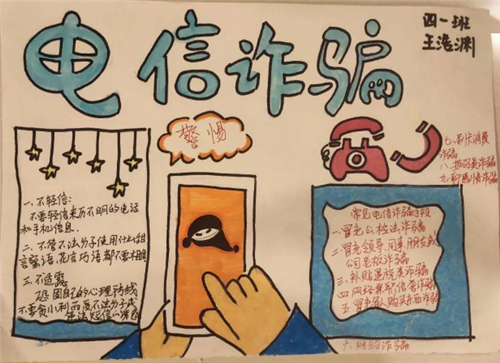 电信诈骗
四一班
王浩渊
警惕
一、不轻信:
不要轻信来历不明的电话
和手机信息.
二、不管不法分子使用什么甜
言蜜语、花言巧语都不要相信
三、不透露
巩固自己的心理防线
不要贪小利而
违法短信
常见电信诈骗手段
一、冒充公检法诈骗
二、冒充领导、同事、朋友或
公司老板诈骗
三、补贴退税类诈骗
四、网络兼职
五、冒充
购买
诈骗
六、
诈骗
七、刷卡消费
诈骗
八、
诈骗
九、
诈骗